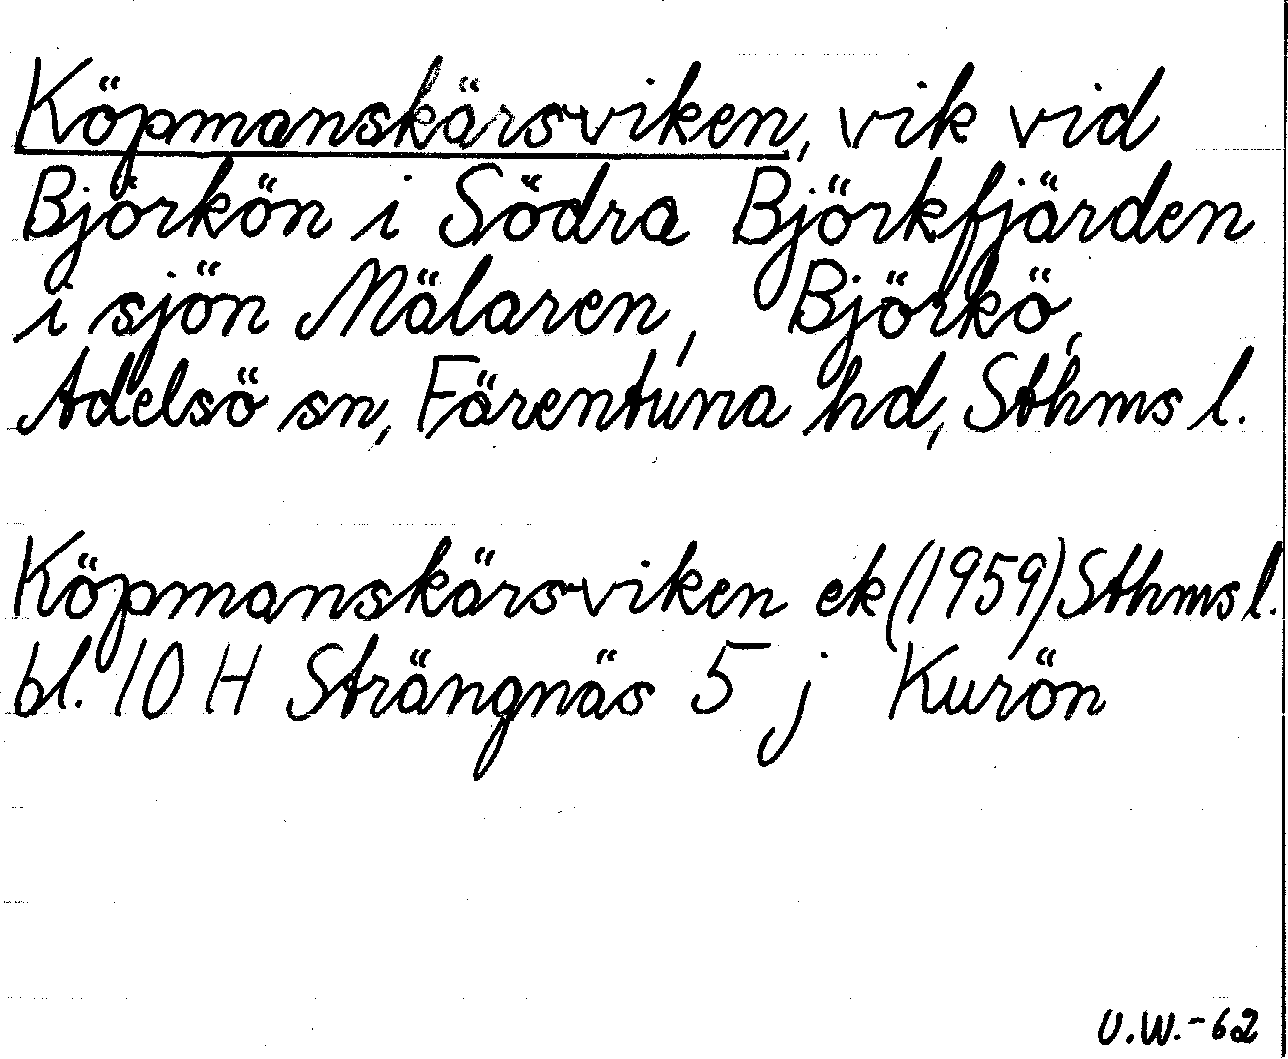 Köpmanskärsviken, vik vid
Björkön i Södra Björkfjärden
i sjön Mälaren, Björkö,
Adelsö sn, Färentuna hd, Sthms l.
Köpmanskärsviken ek (1959) Sthms l.
bl. 10 H Strängnäs 5 j Kurön
U.W.-62